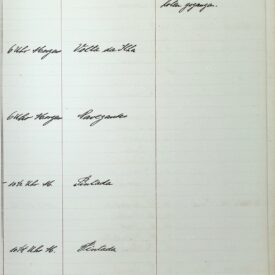 holen gegangen.
6 Uhr Morgen Volta da Ilha
6 Uhr Morgen Navegantes
10½ Uhr M. Pintada
10¼ Uhr M. Pintada